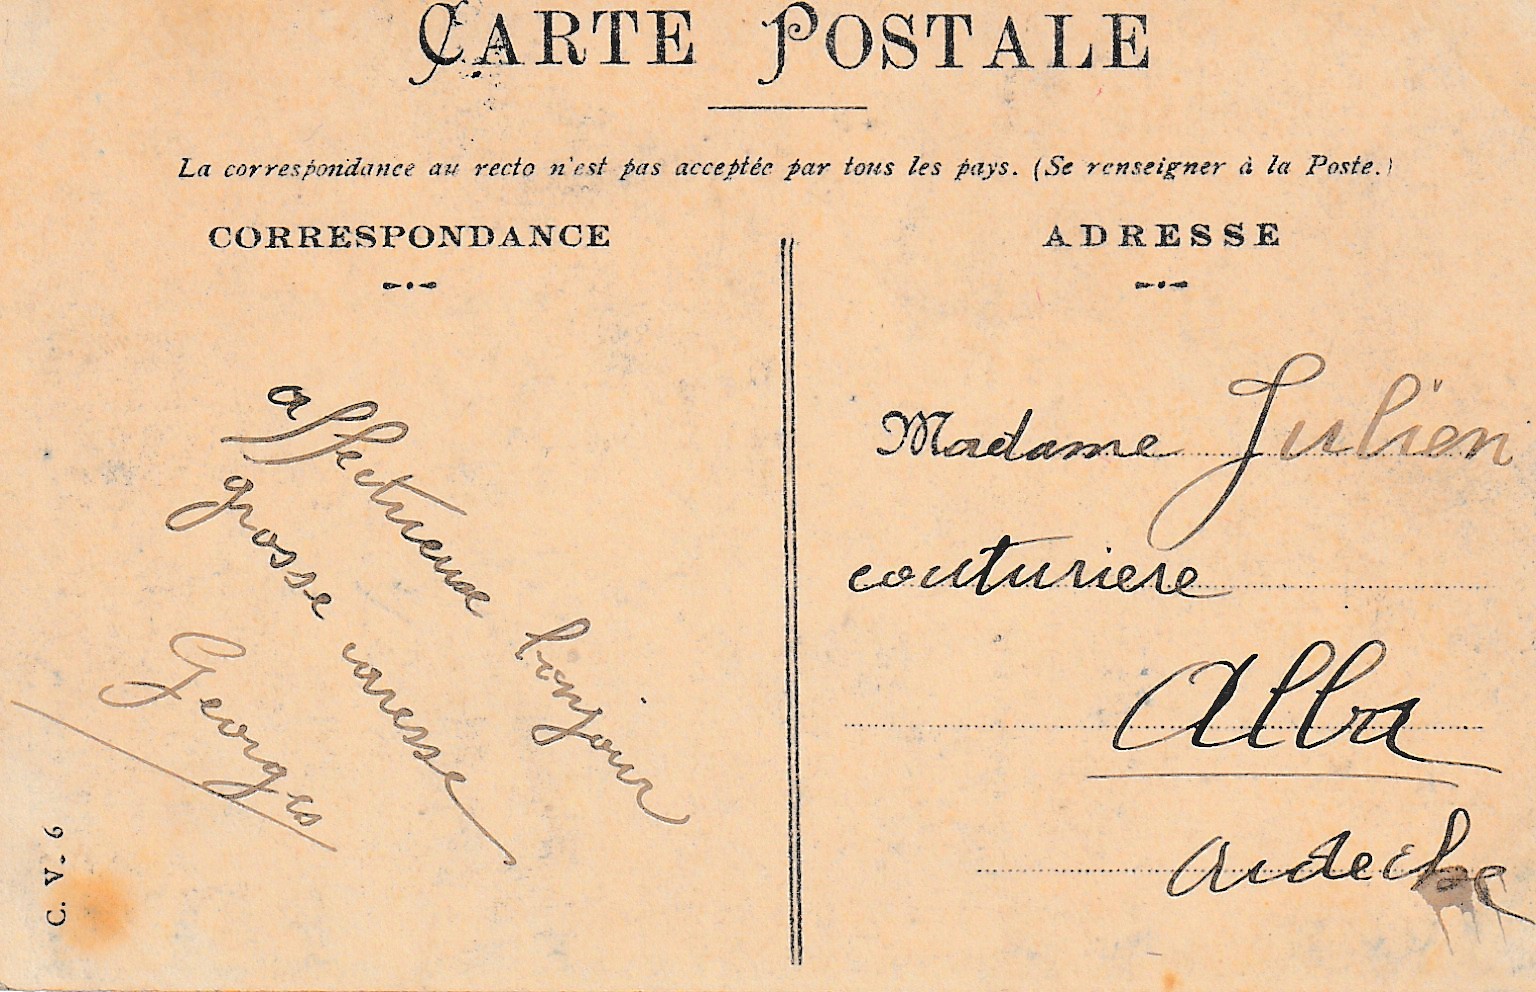 CARTE POSTALE
La correspondance au recto n'est pas acceptée par tous les pays. (Se renseigner à la Poste.)
CORRESPONDANCE
affectueux bonjour
grosse caresse
Georges
C. V. 6
ADRESSE
Madame Julien
couturiere
Alba
Ardeche